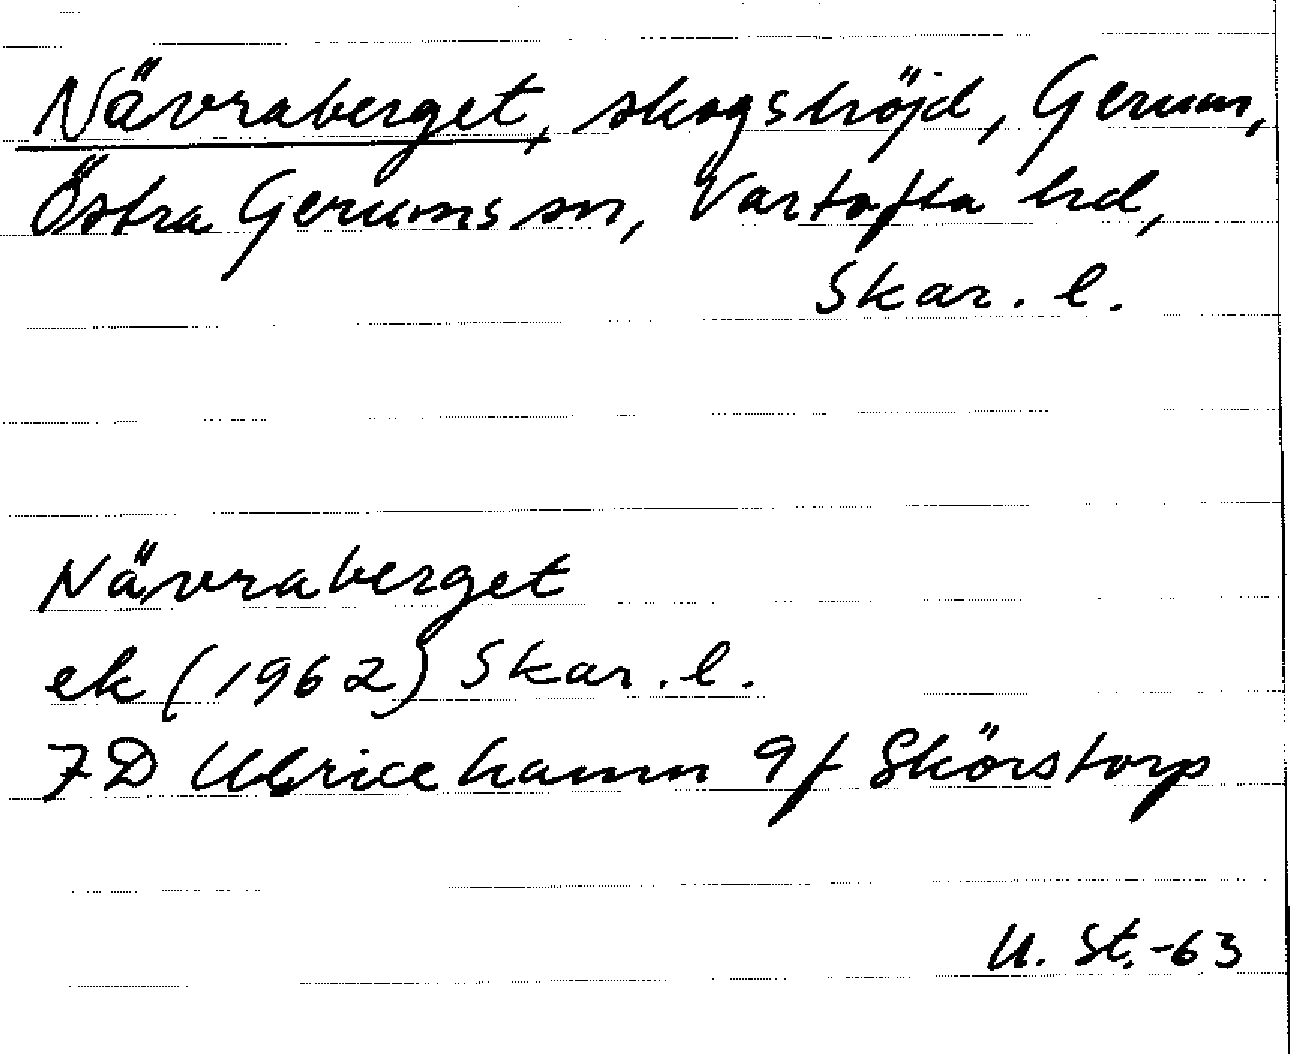 Nävraberget, skogshöjd, Gerum,
Östra Gerums sn, Vartofta hd,
Skar. l.
Nävraberget
ek (1962) Skar. l.
7D Ulricehamn 9f Skörstorp
U. St.-63